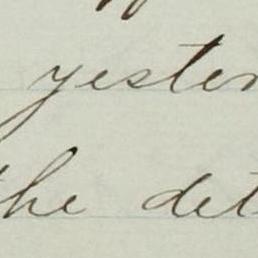 yester
the det